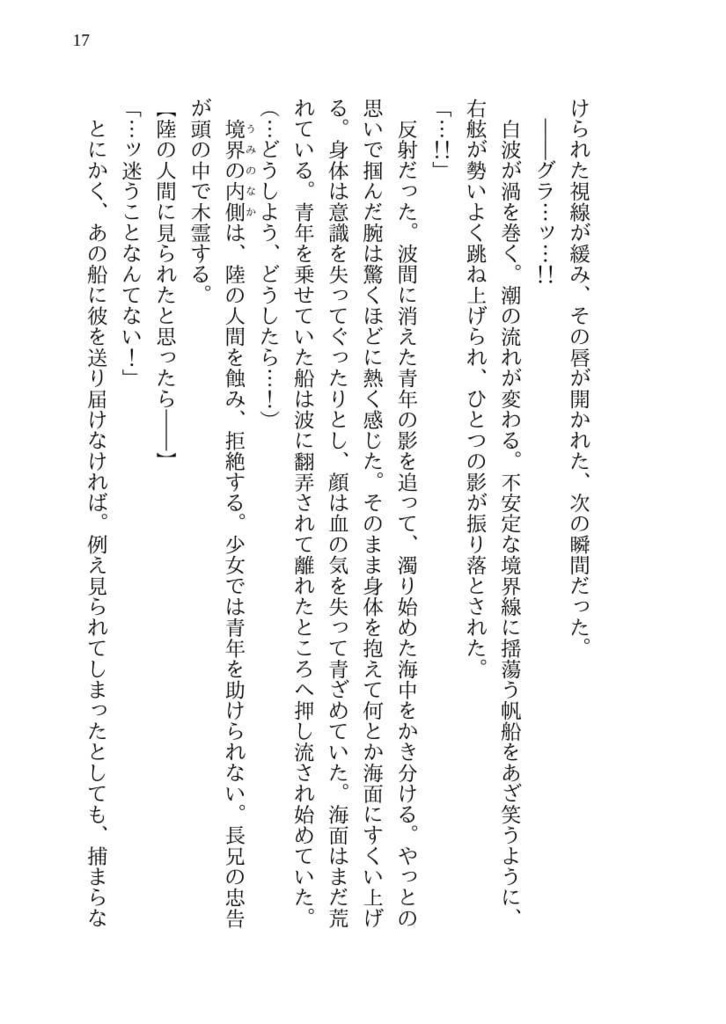 17
けられた視線が緩み、その唇が開かれた、次の瞬間だった。
――グラ…ッ…!!
白波が渦を巻く。潮の流れが変わる。不安定な境界線に揺蕩う帆船をあざ笑うように、
右舷が勢いよく跳ね上げられ、ひとつの影が振り落とされた。
「…!!」
反射だった。波間に消えた青年の影を追って、濁り始めた海中をかき分ける。やっとの
思いで掴んだ腕は驚くほどに熱く感じた。そのまま身体を抱えて何とか海面にすくい上げ
る。身体は意識を失ってぐったりとし、顔は血の気を失って青ざめていた。海面はまだ荒
れている。青年を乗せていた船は波に翻弄されて離れたところへ押し流され始めていた。
(…どうしよう、どうしたら…!)
境界の内側は、陸の人間を蝕み、拒絶する。少女では青年を助けられない。長兄の忠告
うみのなか
が頭の中で木霊する。
【陸の人間に見られたと思ったら――】
「…ッ迷うことなんてない!」
とにかく、あの船に彼を送り届けなければ。例え見られてしまったとしても、捕まらな